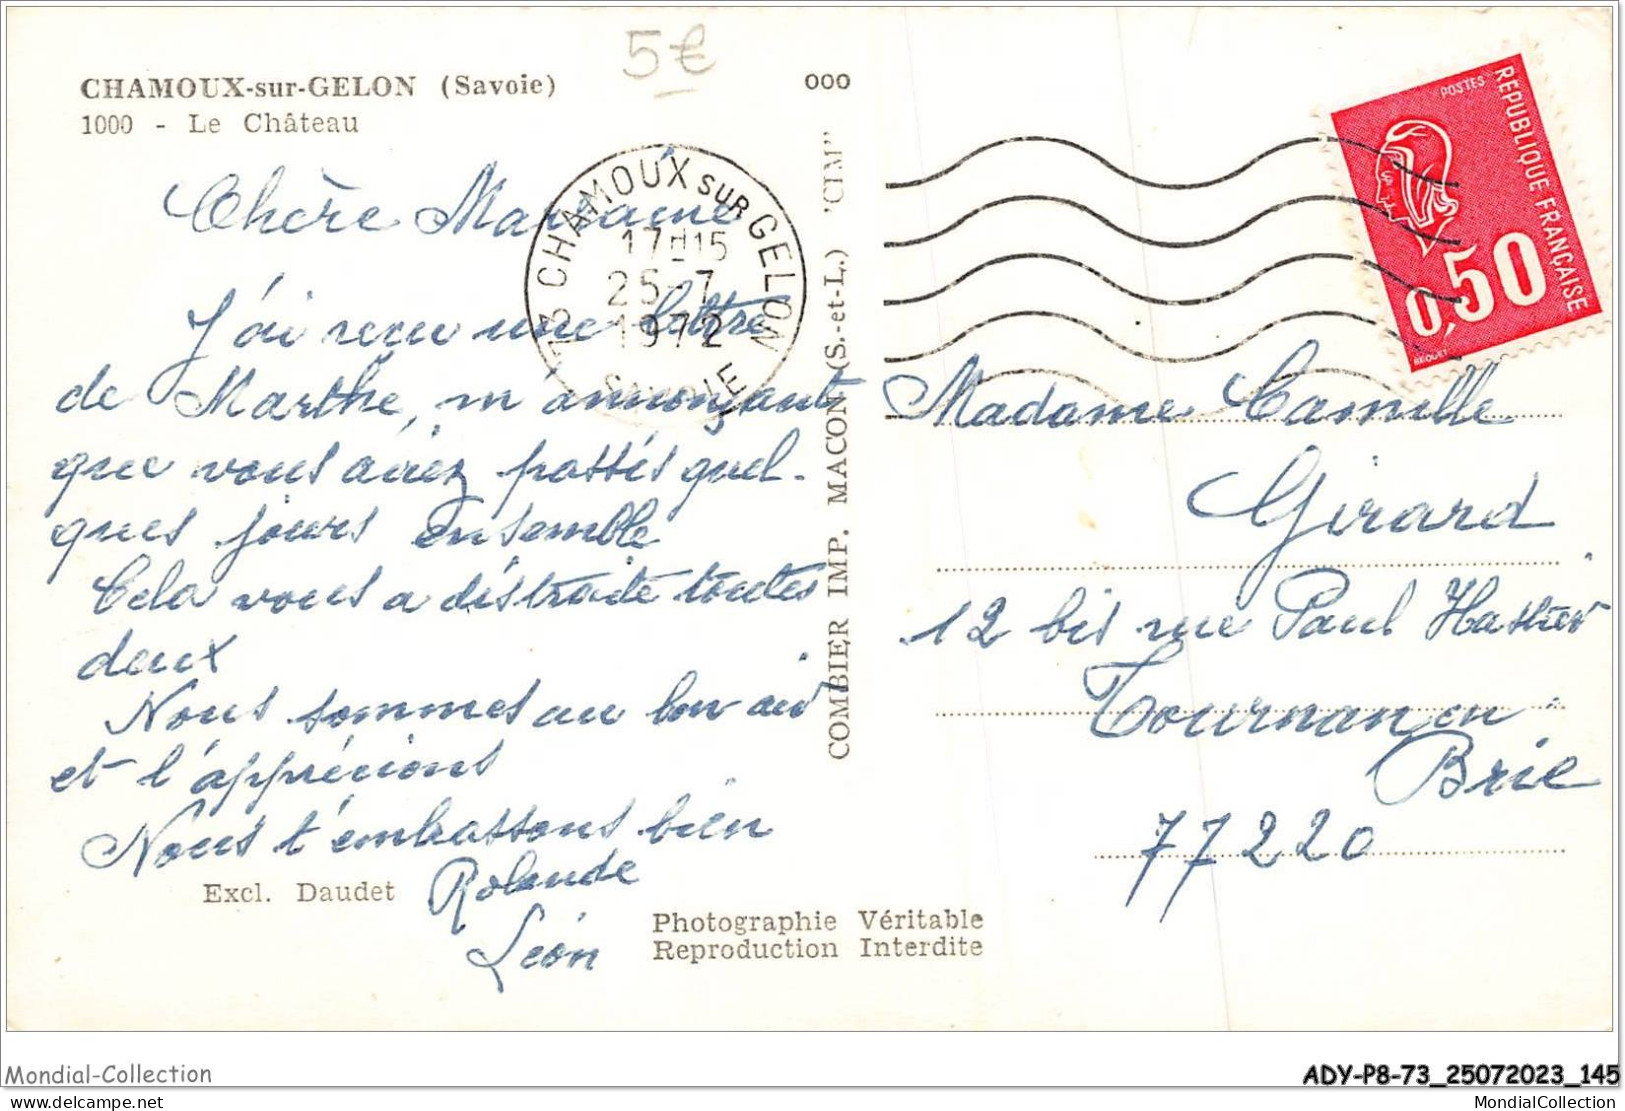 5€
CHAMOUX-sur-GELON (Savoie)
1000 - Le Château
000
73 CHAMOUX SUR GELON
17H15
25-7
1972
SAVOIE
POSTES
REPUBLIQUE FRANÇAISE
0,50
BEQUET
Chère Marraine
J'ai reçu une lettre
de Marthe, m'annonçant
que vous aviez passés quel-
ques jours ensemble
Cela vous a distraite toutes
deux
Nous sommes au bon air
et l'apprécions
Nous t'embrassons bien
Rolande
Léon
Excl. Daudet
COMBIER IMP. MACON (S.-et-L.) "CIM"
Photographie Véritable
Reproduction Interdite
Madame Camille
Girard
12 bis rue Paul
Tournan en
Brie
77220
Mondial-Collection
ADY-P8-73_25072023_145
delcampe.net
MondialCollection